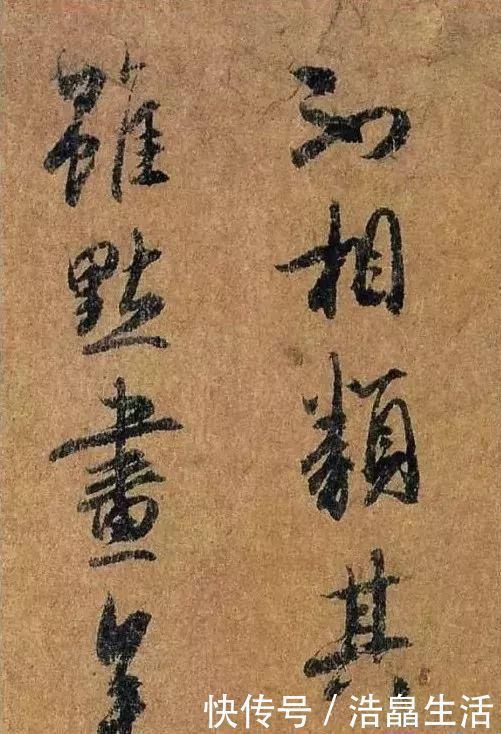 不相類其
雖點畫
快传号 / 浩皛生活